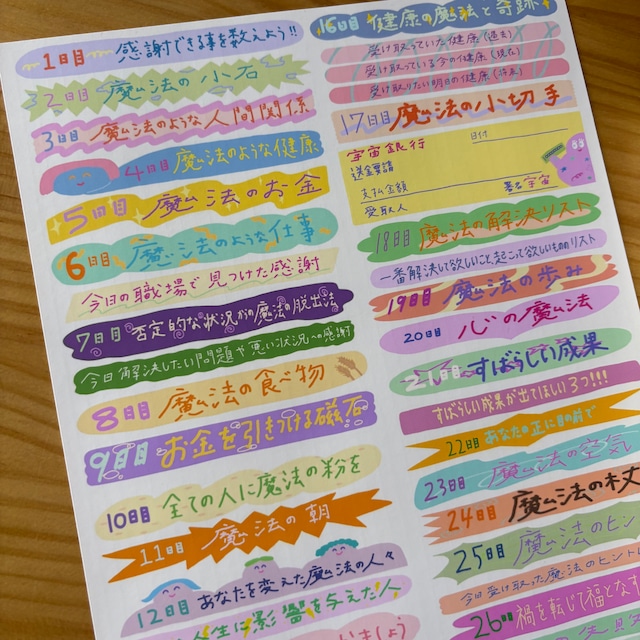 1日目 感謝できる事を数えよう!!
2日目 魔法の小石
3日目 魔法のような人間関係
4日目 魔法のような健康
5日目 魔法のお金
6日目 魔法のような仕事
今日の職場で見つけた感謝
7日目 否定的な状況からの魔法の脱出法
今日解決したい問題や悪い状況への感謝
8日目 魔法の食べ物
9日目 お金を引きつける磁石
10日目 全ての人に魔法の粉を
11日目 魔法の朝
12日目 あなたを変えた魔法の人々
人生に影響を与えた人
ましょう
16日目 健康の魔法と奇跡
受け取っていた健康(過去)
受け取っている今の健康(現在)
受け取りたい明日の健康(将来)
17日目 魔法の小切手
宇宙銀行 日付
送金要請
支払金額 署名 宇宙
受取人
18日目 魔法の解決リスト
一番解決して欲しいこと起こって欲しいものリスト
19日目 魔法の歩み
20日目 心の魔法
21日目 すばらしい成果
すばらしい成果が出てほしい3つ!!!
22日目 あなたの正に目の前で
23日目 魔法の空気
24日目 魔法の杖
25日目 魔法のヒン
今日受け取った魔法のヒント
26日目 禍を転じて福となす